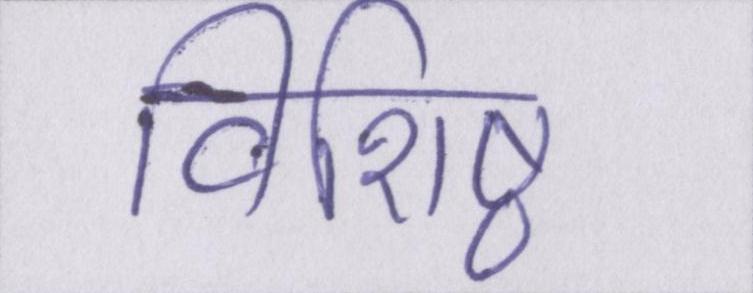 विशिष्ठ